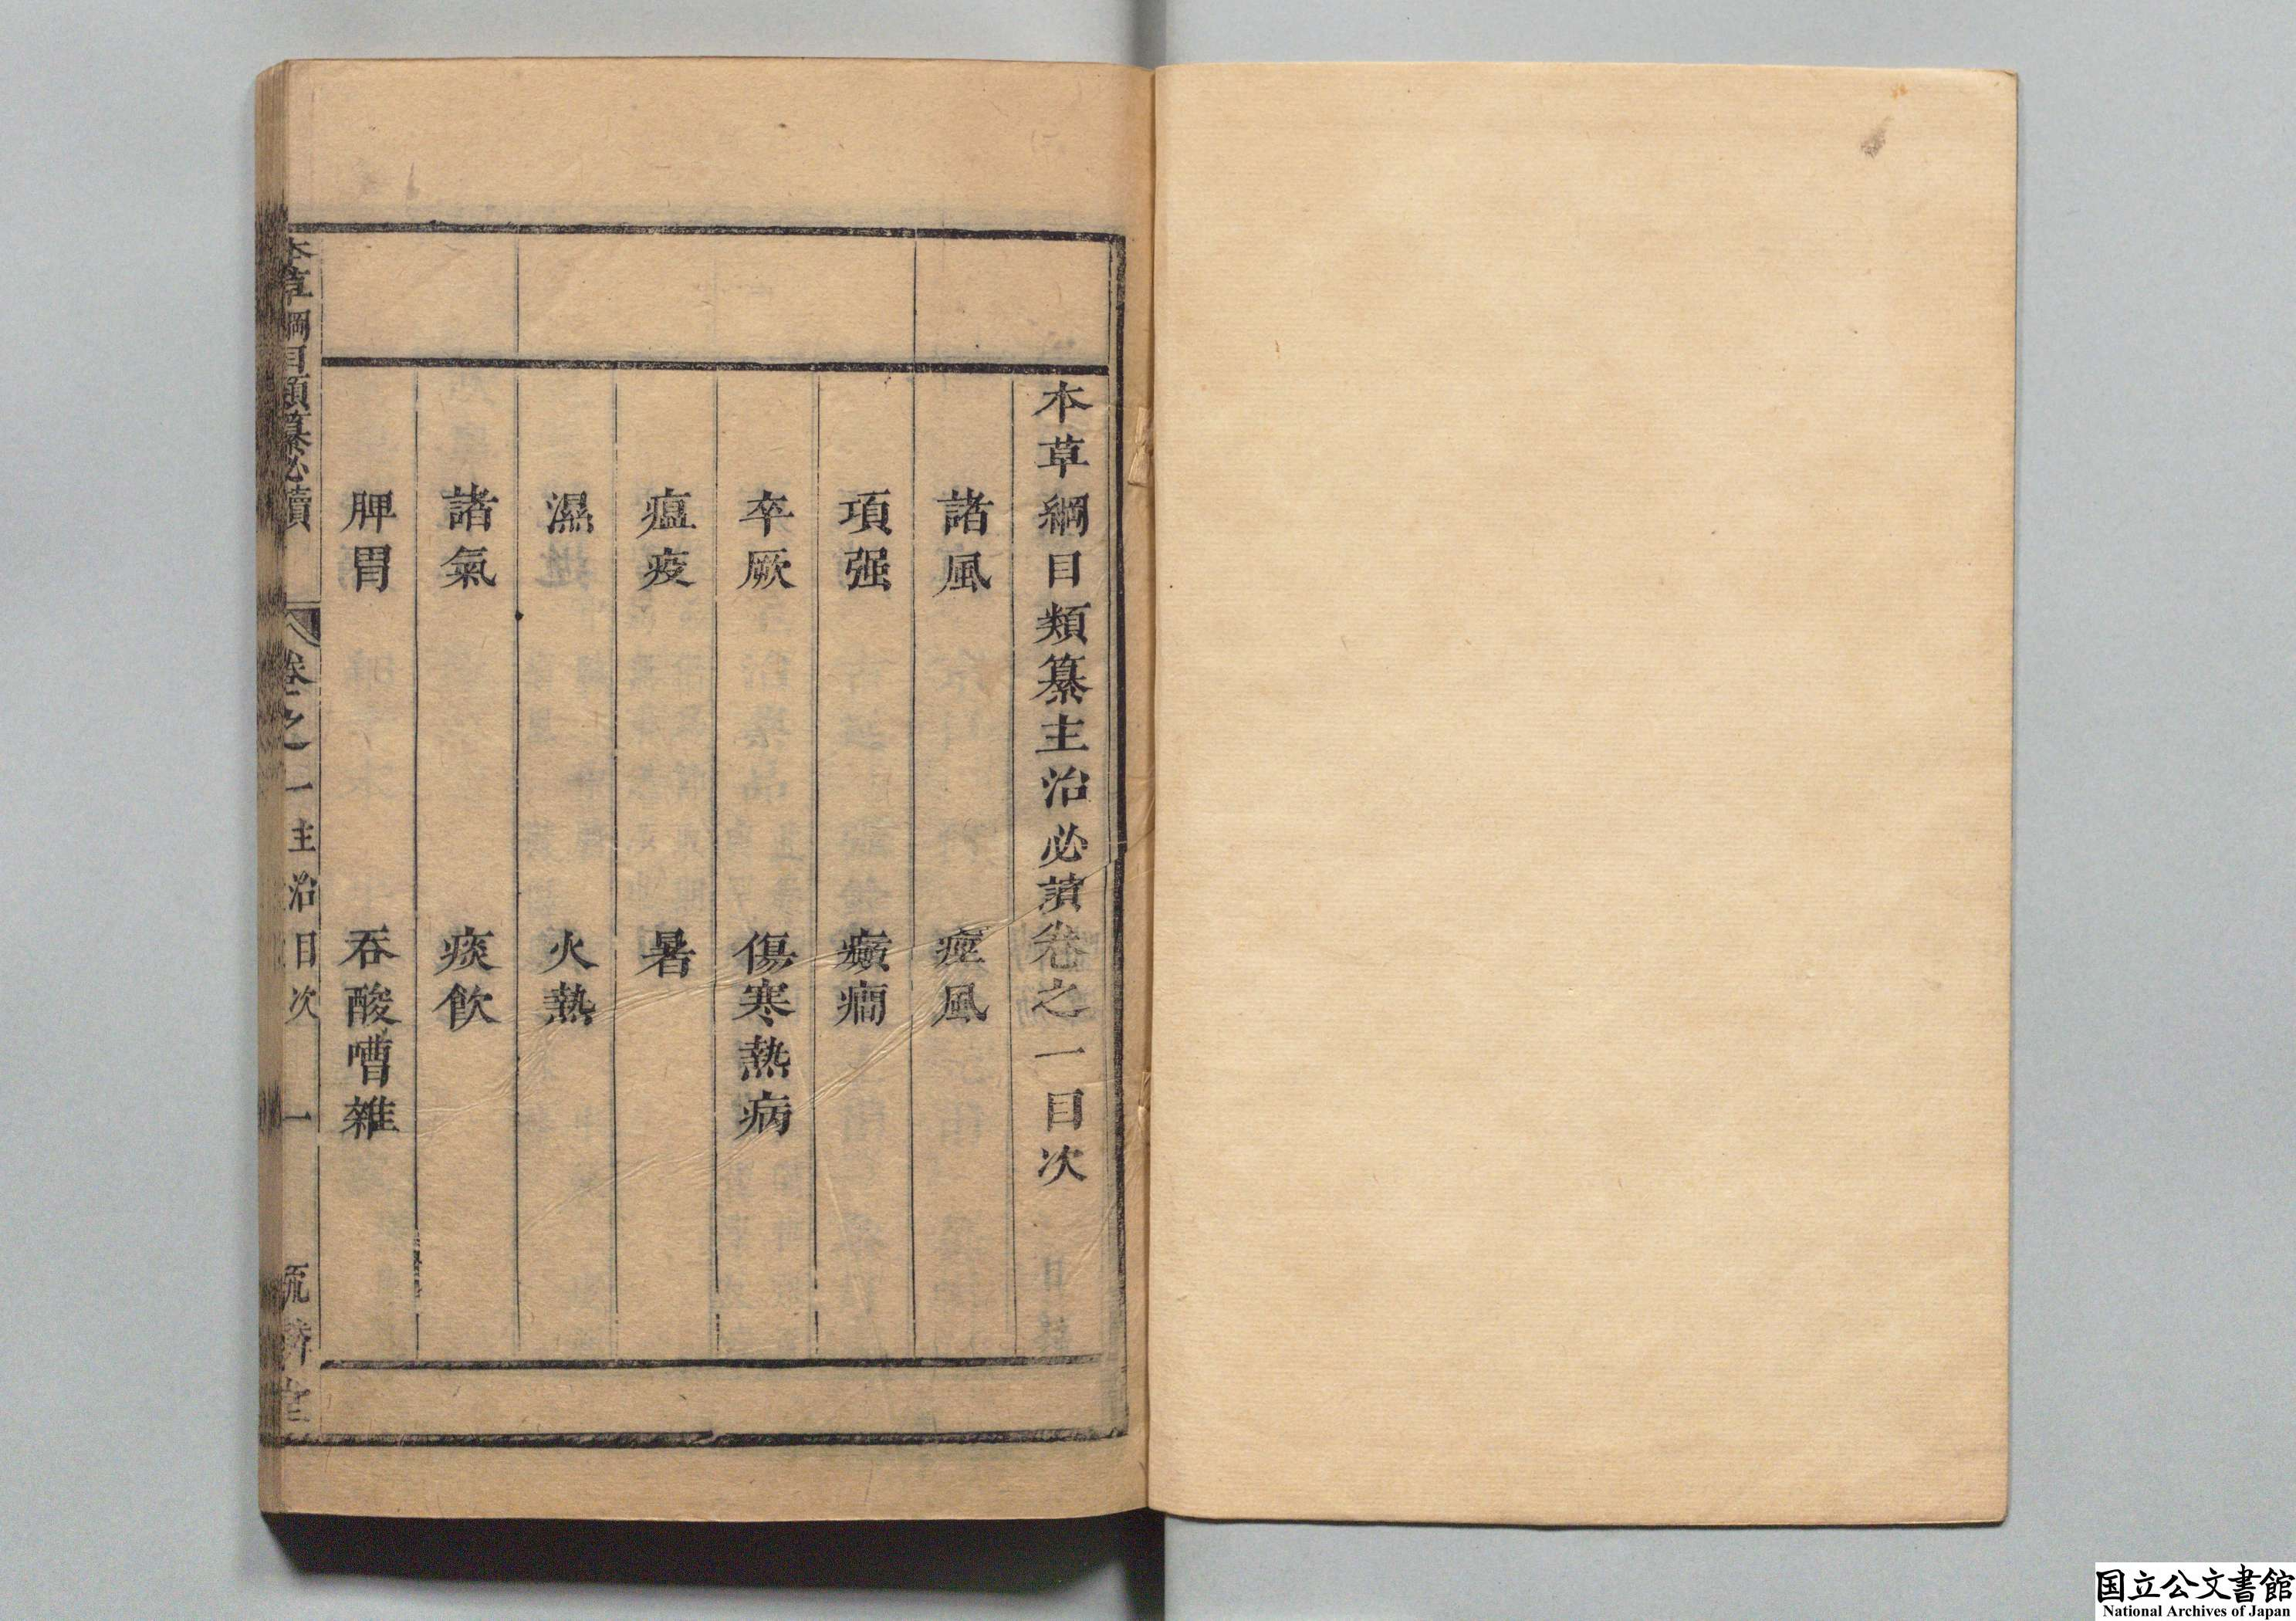 本草綱目類纂主治必讀卷之一目次
諸風　痙風
項强　癲癇
卒厥　傷寒熱病
瘟疫　暑
濕　火熱
諸氣　痰飲
脾胃　吞酸嘈雜
本草綱目類纂必讀　卷之一主治目次　一
国立公文書館
National Archives of Japan